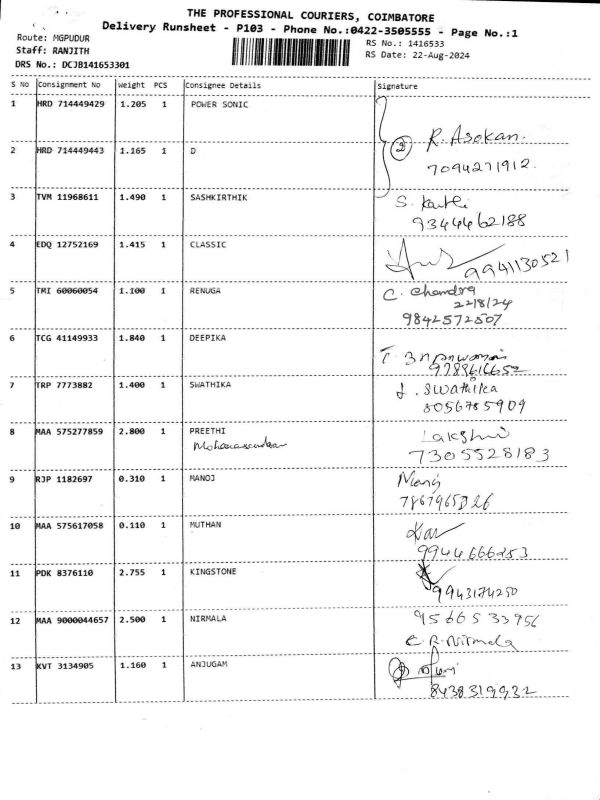 THE PROFESSIONAL COURIERS, COIMBATORE
Delivery Runsheet - P103 - Phone No.:0422-3505555 - Page No.:1
Route: MGPUDUR
RS No.: 1416533
Staff: RANJITH
RS Date: 22-Aug-2024
DRS No.: DCJB141653301
S No Consignment No Weight PCS Consignee Details Signature
1 HRD 714449429 1.205 1 POWER SONIC
2 R. Asokan
7094271912
2 HRD 714449443 1.165 1 D
3 TVM 11968611 1.490 1 SASHKIRTHIK S.
9344462188
4 EDQ 12752169 1.415 1 CLASSIC
9941130521
5 TMI 60060054 1.100 1 RENUGA C. Chandra
22/8/24
9842572507
6 TCG 41149933 1.840 1 DEEPIKA
7 TRP 7773882 1.400 1 SWATHIKA J. Swathika
8056785909
8 MAA 575277859 2.800 1 PREETHI Lakshmi
7305528183
9 RJP 1182697 0.310 1 MANOJ Manoj
10 MAA 575617058 0.110 1 MUTHAN
9944666253
11 PDK 8376110 2.755 1 KINGSTONE
9943174250
12 MAA 9000044657 2.500 1 NIRMALA 9566533956
R. Nirmala
13 KVT 3134905 1.160 1 ANJUGAM
8438319932